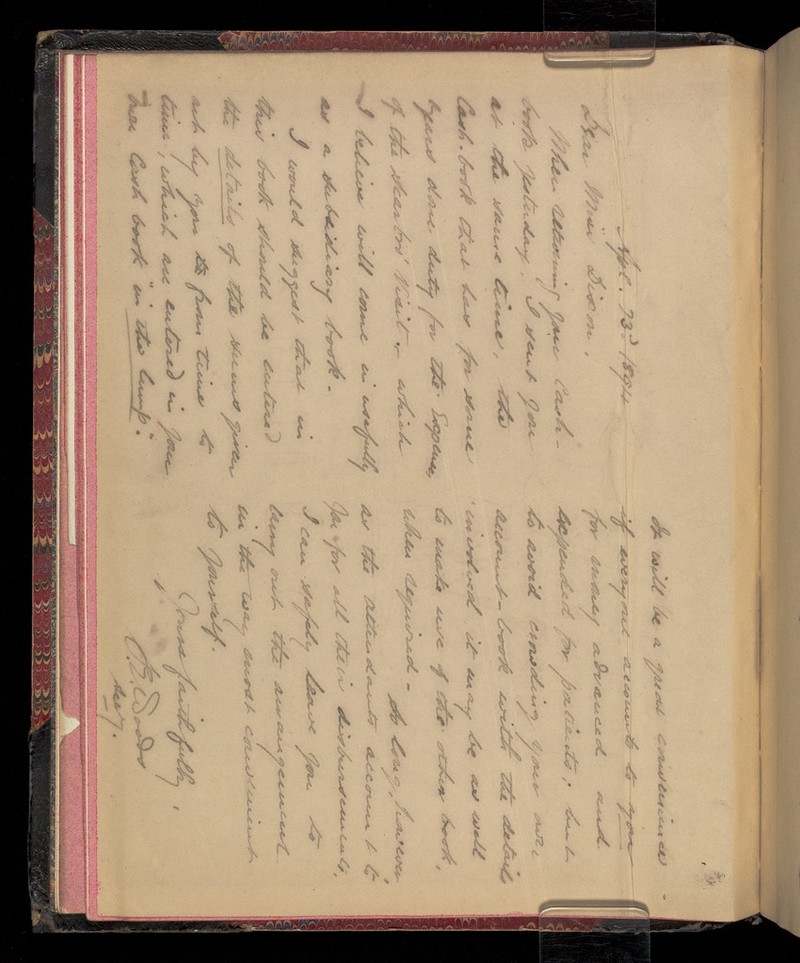 Apl. 23rd 1894
Dear Miss Dixon,
When returning your Cash-
book yesterday, I sent you
at the same time, the
Cash-book that has for some
years done duty for the Expenses
of the Seaton Visit - which
I believe will come in usefully
as a subsidiary book -
I would suggest that in
this book should be entered
the details of the sums given
out by you from time to
time, which are entered in your
main Cash book "in the lump".
It will be a great convenience
if everyone accounts to you
for money advanced and
expended for patients; but
to avoid crowding your own
account-book with the details
involved it may be as well
to make use of the other book,
when required - So long, however
as the attendants account to
you for all their disbursements,
I can safely leave you to
bring out the arrangement
in the way most convenient
to yourself.
Yours faithfully,
Woods
Secy.